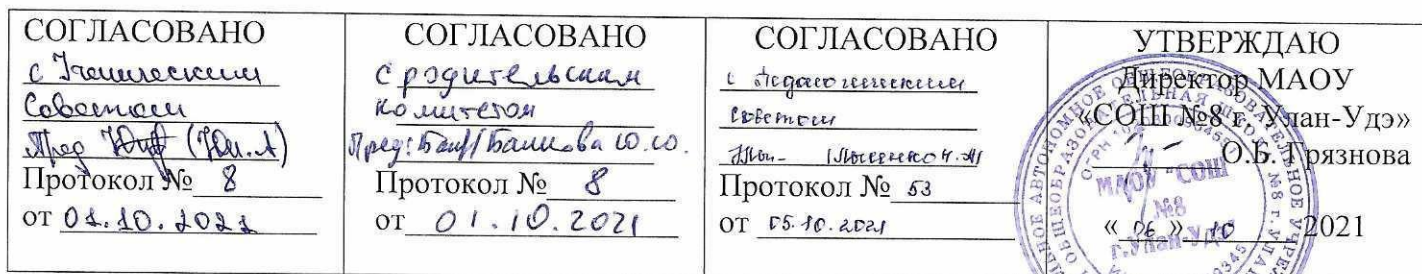 СОГЛАСОВАНО
с Ученическим
Советом
Пред
Протокол № 8
от 01.10.2021
СОГЛАСОВАНО
с родительским
комитетом
Пред: Банщ/ Банщова Ю.Ю.
Протокол № 8
от 01.10.2021
СОГЛАСОВАНО
с Педагогическим
советом
Протокол № 53
от 05.10.2021
УТВЕРЖДАЮ
Директор МАОУ
«СОШ №8 г. Улан-Удэ»
О.Б. Грязнова
« 06 » 10 2021
МАОУ "СОШ
№8
г.Улан-Удэ"